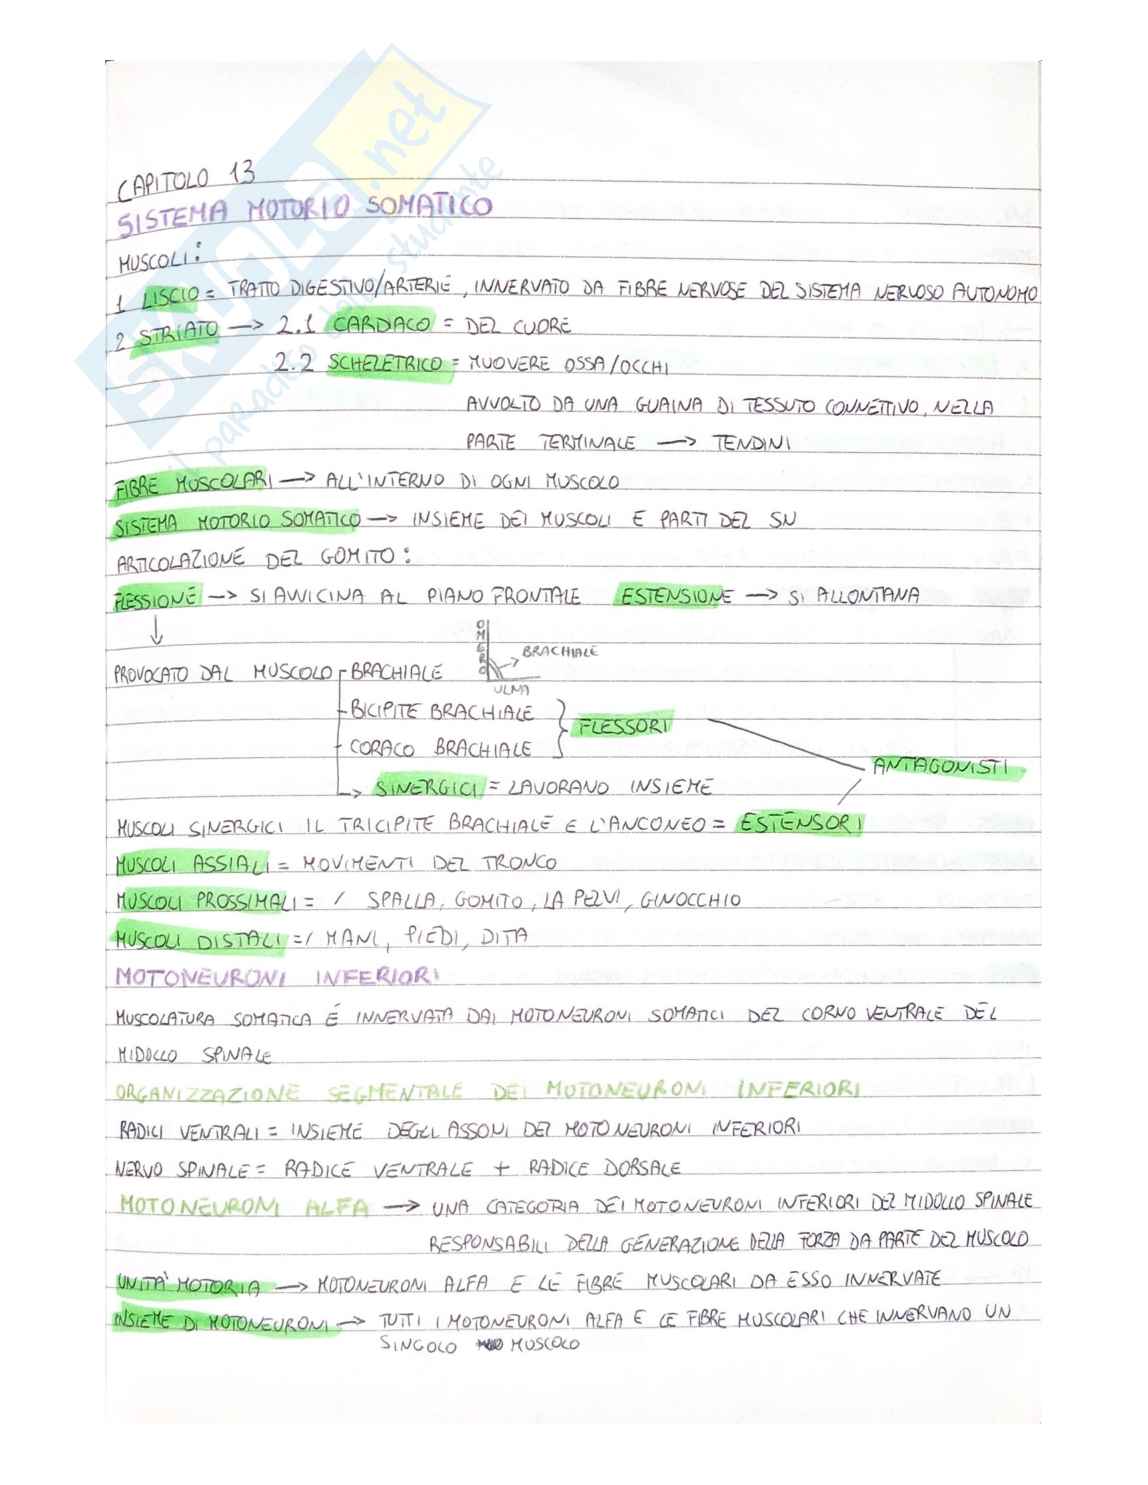 CAPITOLO 13
SISTEMA MOTORIO SOMATICO
MUSCOLI:
1 LISCIO = TRATTO DIGESTIVO/ARTERIE, INNERVATO DA FIBRE NERVOSE DEL SISTEMA NERVOSO AUTONOMO
2 STRIATO → 2.1 CARDIACO = DEL CUORE
2.2 SCHELETRICO = MUOVERE OSSA/OCCHI
AVVOLTO DA UNA GUAINA DI TESSUTO CONNETTIVO, NELLA
PARTE TERMINALE → TENDINI
FIBRE MUSCOLARI → ALL'INTERNO DI OGNI MUSCOLO
SISTEMA MOTORIO SOMATICO → INSIEME DEI MUSCOLI E PARTI DEL SN
ARTICOLAZIONE DEL GOMITO:
FLESSIONE → SI AVVICINA AL PIANO FRONTALE ESTENSIONE → SI ALLONTANA
OMERO
BRACHIALE
PROVOCATO DAL MUSCOLO - BRACHIALE
ULNA
- BICIPITE BRACHIALE
FLESSORI
- CORACO BRACHIALE
ANTAGONISTI
→ SINERGICI = LAVORANO INSIEME
MUSCOLI SINERGICI IL TRICIPITE BRACHIALE E L'ANCONEO = ESTENSORI
MUSCOLI ASSIALI = MOVIMENTI DEL TRONCO
MUSCOLI PROSSIMALI = / SPALLA, GOMITO, LA PELVI, GINOCCHIO
MUSCOLI DISTALI = / MANI, PIEDI, DITA
MOTONEURONI INFERIORI
MUSCOLATURA SOMATICA É INNERVATA DAI MOTONEURONI SOMATICI DEL CORNO VENTRALE DEL
MIDOLLO SPINALE
ORGANIZZAZIONE SEGMENTALE DEI MOTONEURONI INFERIORI
RADICI VENTRALI = INSIEME DEGLI ASSONI DEI MOTONEURONI INFERIORI
NERVO SPINALE = RADICE VENTRALE + RADICE DORSALE
MOTONEURONI ALFA → UNA CATEGORIA DEI MOTONEURONI INFERIORI DEL MIDOLLO SPINALE
RESPONSABILI DELLA GENERAZIONE DELLA FORZA DA PARTE DEL MUSCOLO
UNITA' MOTORIA → MOTONEURONI ALFA E LE FIBRE MUSCOLARI DA ESSO INNERVATE
INSIEME DI MOTONEURONI → TUTTI I MOTONEURONI ALFA E LE FIBRE MUSCOLARI CHE INNERVANO UN
SINGOLO MUSCOLO
SKUOLA.net
il paradiso dello studente